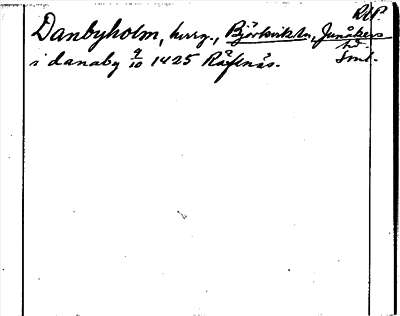 RAP.
Danbyholm, herrg., Björkvikt sn, Jonåkers
hd.
i danaby 9/10 1425 Räfsnäs. Sml.